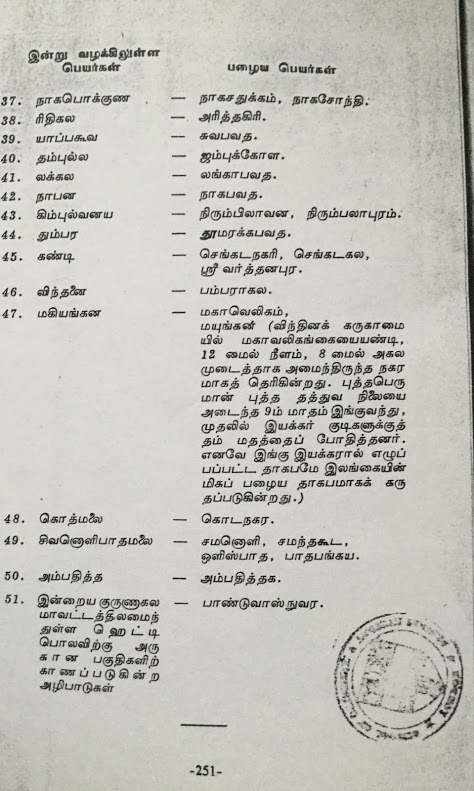 இன்று வழக்கிலுள்ள
பெயர்கள்
பழைய பெயர்கள்
37. நாகபொக்குண — நாகசதுக்கம், நாகசோந்தி.
38. ரிதிகல — அரித்தகிரி.
39. யாப்பகூவ — சுவபவத.
40. தம்புல்ல — ஜம்புக்கோள.
41. லக்கல — லங்காபவத.
42. நாபன — நாகபவத.
43. கிம்புல்வனய — நிரும்பிலாவன, நிரும்பலாபுரம்.
44. தும்பர — தூமரக்கபவத.
45. கண்டி — செங்கடநகரி, செங்கடகல,
ஸ்ரீ வர்த்தனபுர.
46. விந்தனை — பம்பராகல.
47. மகியங்கன — மகாவெலிகம்,
மயுங்கன் (விந்தினக் கருகாமை
யில் மகாவலிகங்கையையண்டி,
12 மைல் நீளம், 8 மைல் அகல
முடைத்தாக அமைந்திருந்த நகர
மாகத் தெரிகின்றது. புத்தபெரு
மான் புத்த தத்துவ நிலையை
அடைந்த 9ம் மாதம் இங்குவந்து,
முதலில் இயக்கர் குடிகளுக்குத்
தம் மதத்தைப் போதித்தனர்.
எனவே இங்கு இயக்கரால் எழுப்
பப்பட்ட தாகபமே இலங்கையின்
மிகப் பழைய தாகபமாகக் கரு
தப்படுகின்றது.)
48. கொத்மலை — கொடநகர.
49. சிவனொளிபாதமலை — சமனொளி, சமந்தகூட,
ஒளிஸ்பாத, பாதபங்கய.
50. அம்பதித்த — அம்பதித்தக.
51. இன்றைய குருணாகல — பாண்டுவாஸ்நுவர.
மாவட்டத்திலமைந்
துள்ள ஹெட்டி
பொலவிற்கு அரு
கான பகுதிகளிற்
காணப்படுகின்ற
அழிபாடுகள்
-251-